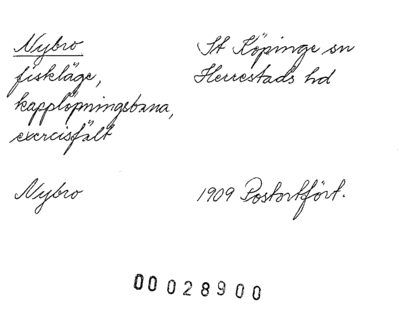 Nybro St Köpinge sn
fiskläge, Herrestads hd
kapplöpningsbana,
exercisfält
Nybro 1909 Postortfört.
00028900